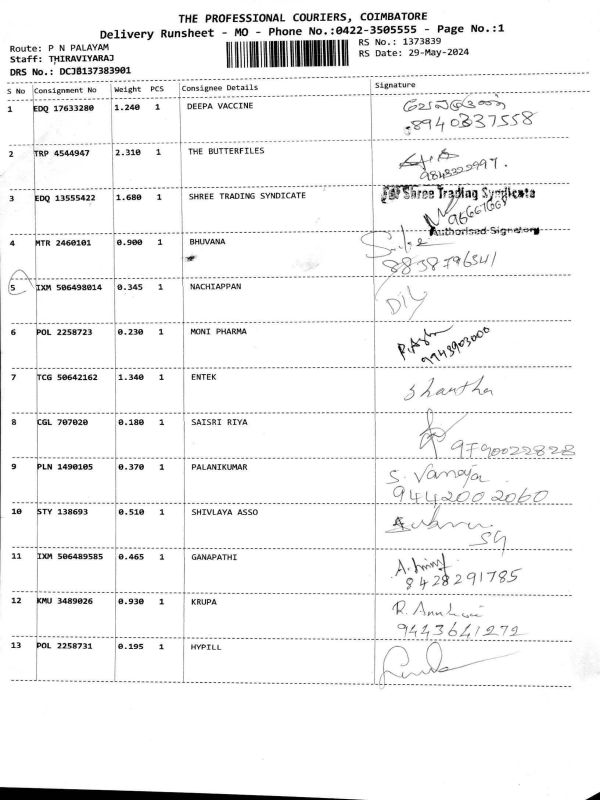 THE PROFESSIONAL COURIERS, COIMBATORE
Delivery Runsheet - MO - Phone No.:0422-3505555 - Page No.:1
Route: P N PALAYAM
RS No.: 1373839
Staff: THIRAVIYARAJ
RS Date: 29-May-2024
DRS No.: DCJB137383901
S No Consignment No Weight PCS Consignee Details Signature
1 EDQ 17633280 1.240 1 DEEPA VACCINE
8940337558
2 TRP 4544947 2.310 1 THE BUTTERFILES
3 EDQ 13555422 1.680 1 SHREE TRADING SYNDICATE Shree Trading Syndicate
Authorised Signatory
4 MTR 2460101 0.900 1 BHUVANA
8838796341
5 IXM 506498014 0.345 1 NACHIAPPAN
6 POL 2258723 0.230 1 MONI PHARMA
9943903000
7 TCG 50642162 1.340 1 ENTEK Shantha
8 CGL 707020 0.180 1 SAISRI RIYA
9790022828
9 PLN 1490105 0.370 1 PALANIKUMAR S. Vanaja
9442002060
10 STY 138693 0.510 1 SHIVLAYA ASSO
11 IXM 506489585 0.465 1 GANAPATHI
8428291785
12 KMU 3489026 0.930 1 KRUPA
9443641272
13 POL 2258731 0.195 1 HYPILL